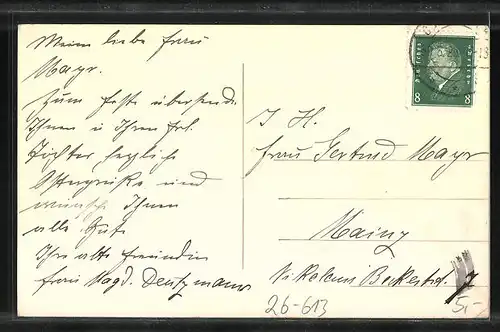 Meine liebe Frau
Mayr.
Zum Feste übersende
Ihnen u Ihren Frl.
Töchter herzliche
Ostergrüße und
wünsche Ihnen
alles Gute
Ihre alte Freundin
Frau Magd. Dentzmann
8 8
I. H.
Frau Gertrud Mayr
Mainz
Nikolaus Beckerstr. 7
26-613
5,-